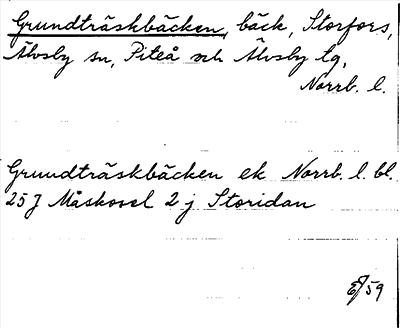 Grundträskbäcken, bäck, Storfors,
Älvsby sn, Piteå och Älvsby tg,
Norrb. l.
Grundträskbäcken ek Norrb. l. bl.
25 J Måskosel 2 j Storidan
59